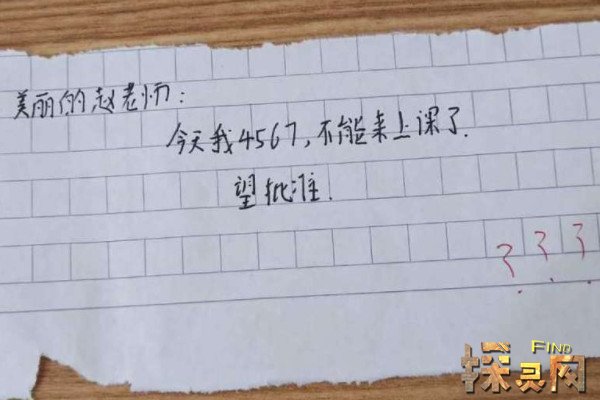 美丽的赵老师:
今天我4567,不能来上课了.
望批准.
???
FIND
探灵网